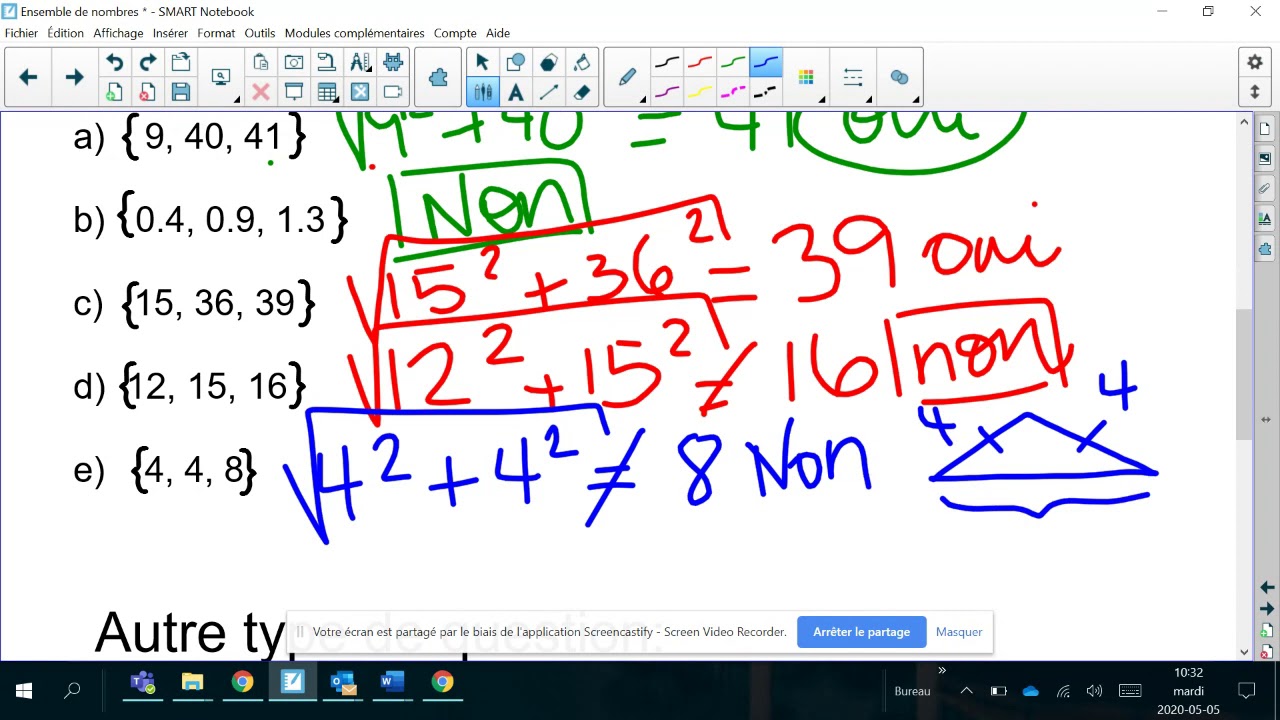 Ensemble de nombres * - SMART Notebook
Fichier Édition Affichage Insérer Format Outils Modules complémentaires Compte Aide
a) {9, 40, 41} √9² + 40 = 41 oui
b) {0.4, 0.9, 1.3} Non
c) {15, 36, 39} √15² + 36² = 39 oui
d) {12, 15, 16} √12² + 15² ≠ 16 non
e) {4, 4, 8} √4² + 4² ≠ 8 Non
4 4
Autre type de question:
Votre écran est partagé par le biais de l'application Screencastify - Screen Video Recorder. Arrêter le partage Masquer
Bureau » 10:32
mardi
2020-05-05